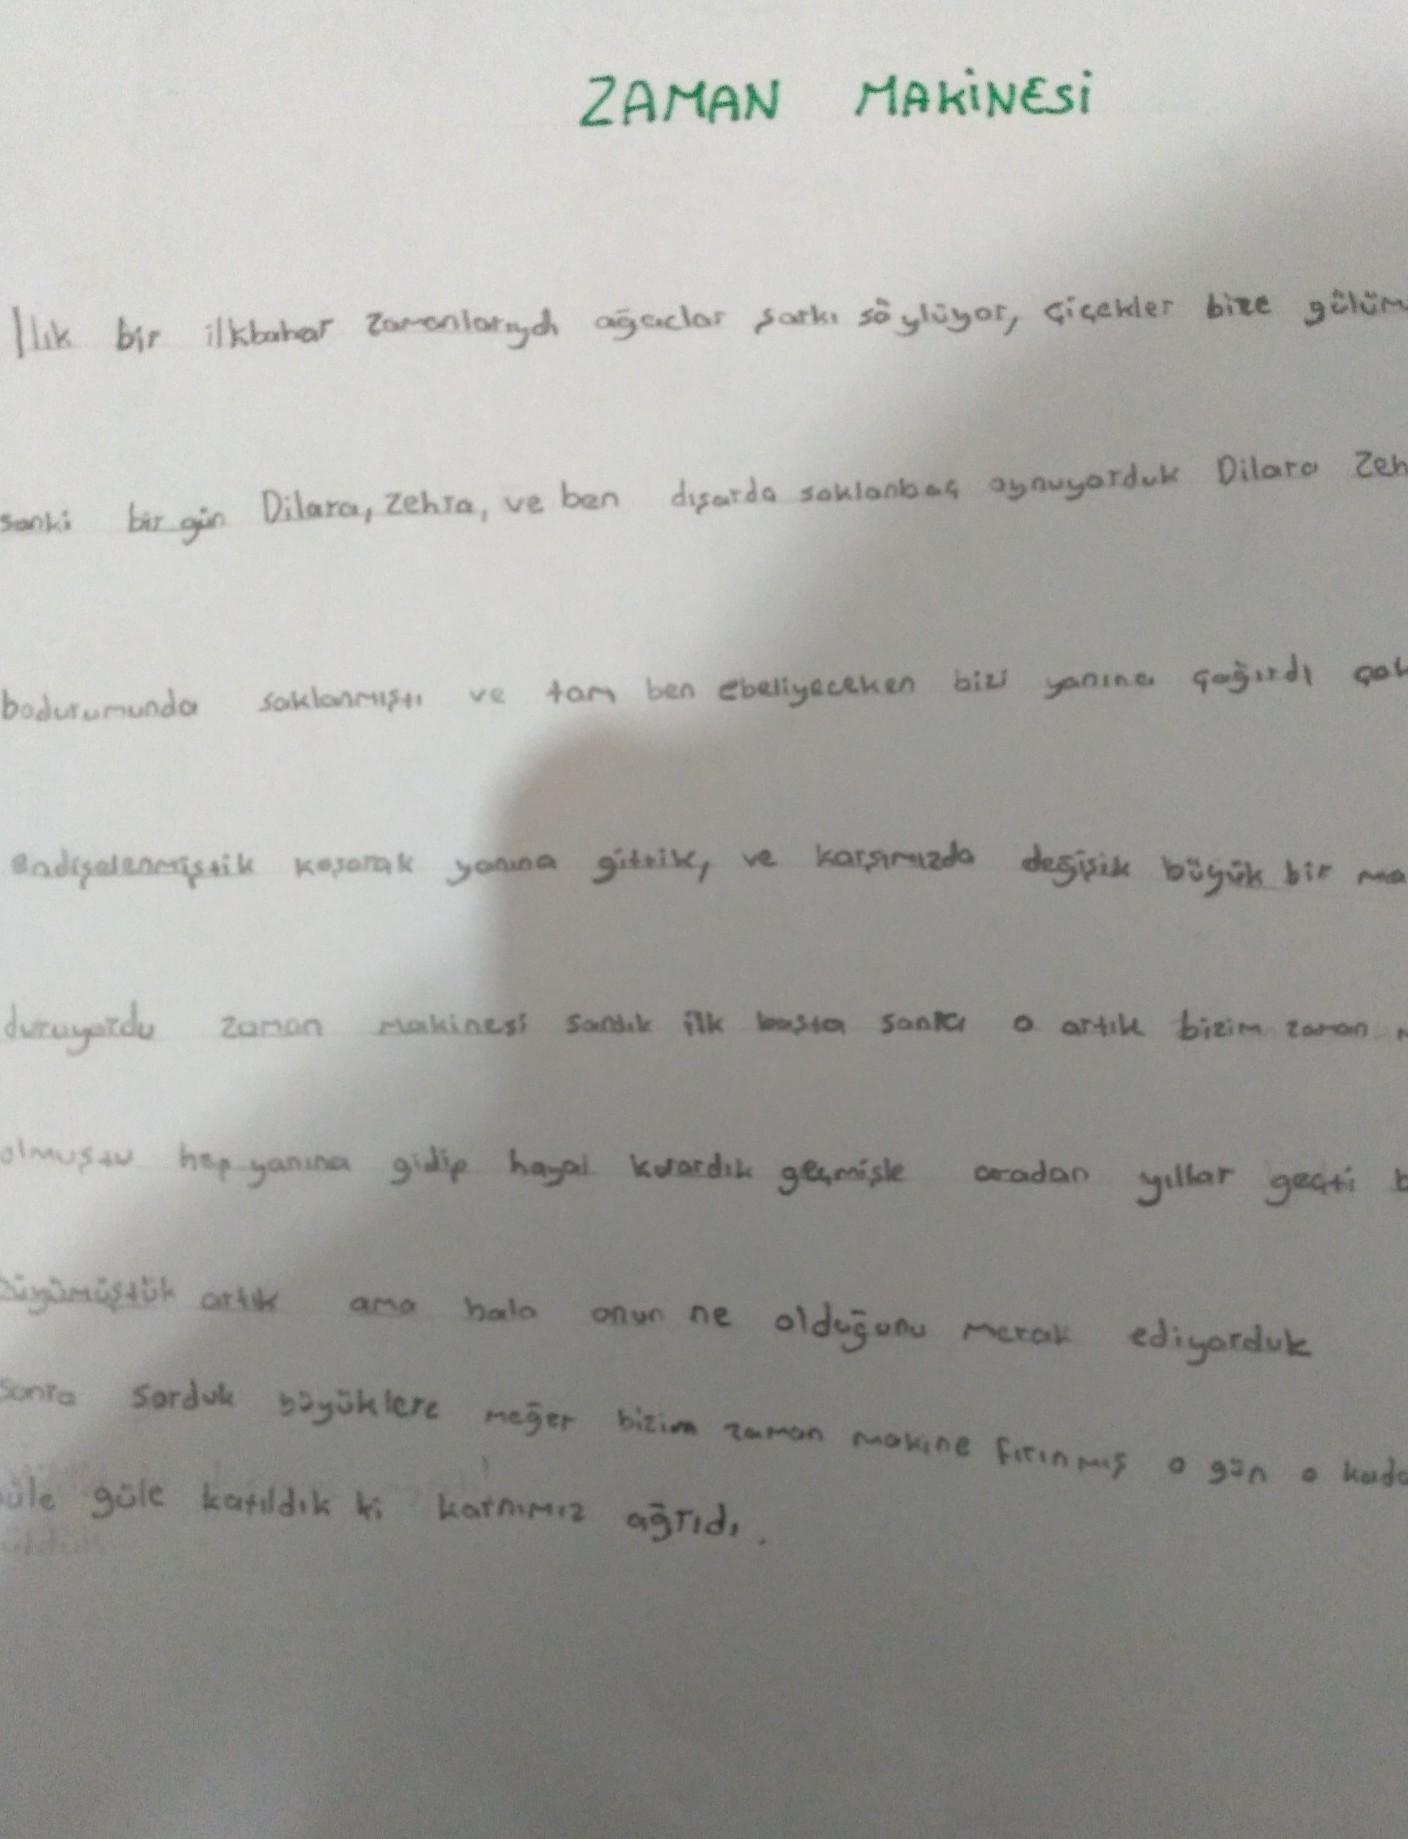 ZAMAN MAKİNESİ
Ilık bir ilkbahar zamanlarıydı ağaclar şarkı söylüyor, çiçekler bize gülüm
sanki bir gün Dilara, Zehra, ve ben dışarda saklanbaç oynuyorduk Dilara Zeh
bodurumunda saklanmıştı ve tam ben ebeliyeceken bizi yanına çağırdı çok
endişelenmiştik koşarak yanına gittik, ve karşımızda değişik büyük bir ma
duruyordu zaman makinesi sandık ilk başta sanki o artık bizim zaman
olmuştu hep yanına gidip hayal kurardık geçmişle aradan yıllar geçti b
büyümüştük artık ama hala onun ne olduğunu merak ediyorduk
Sonra sorduk büyüklere meğer bizim zaman makine fırınmış o gün o kada
güle güle katıldık ki karnımız ağrıdı.